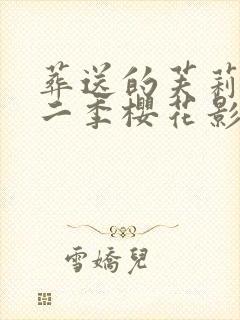 葬送的芙莉
二季櫻花影
雪嬌兒